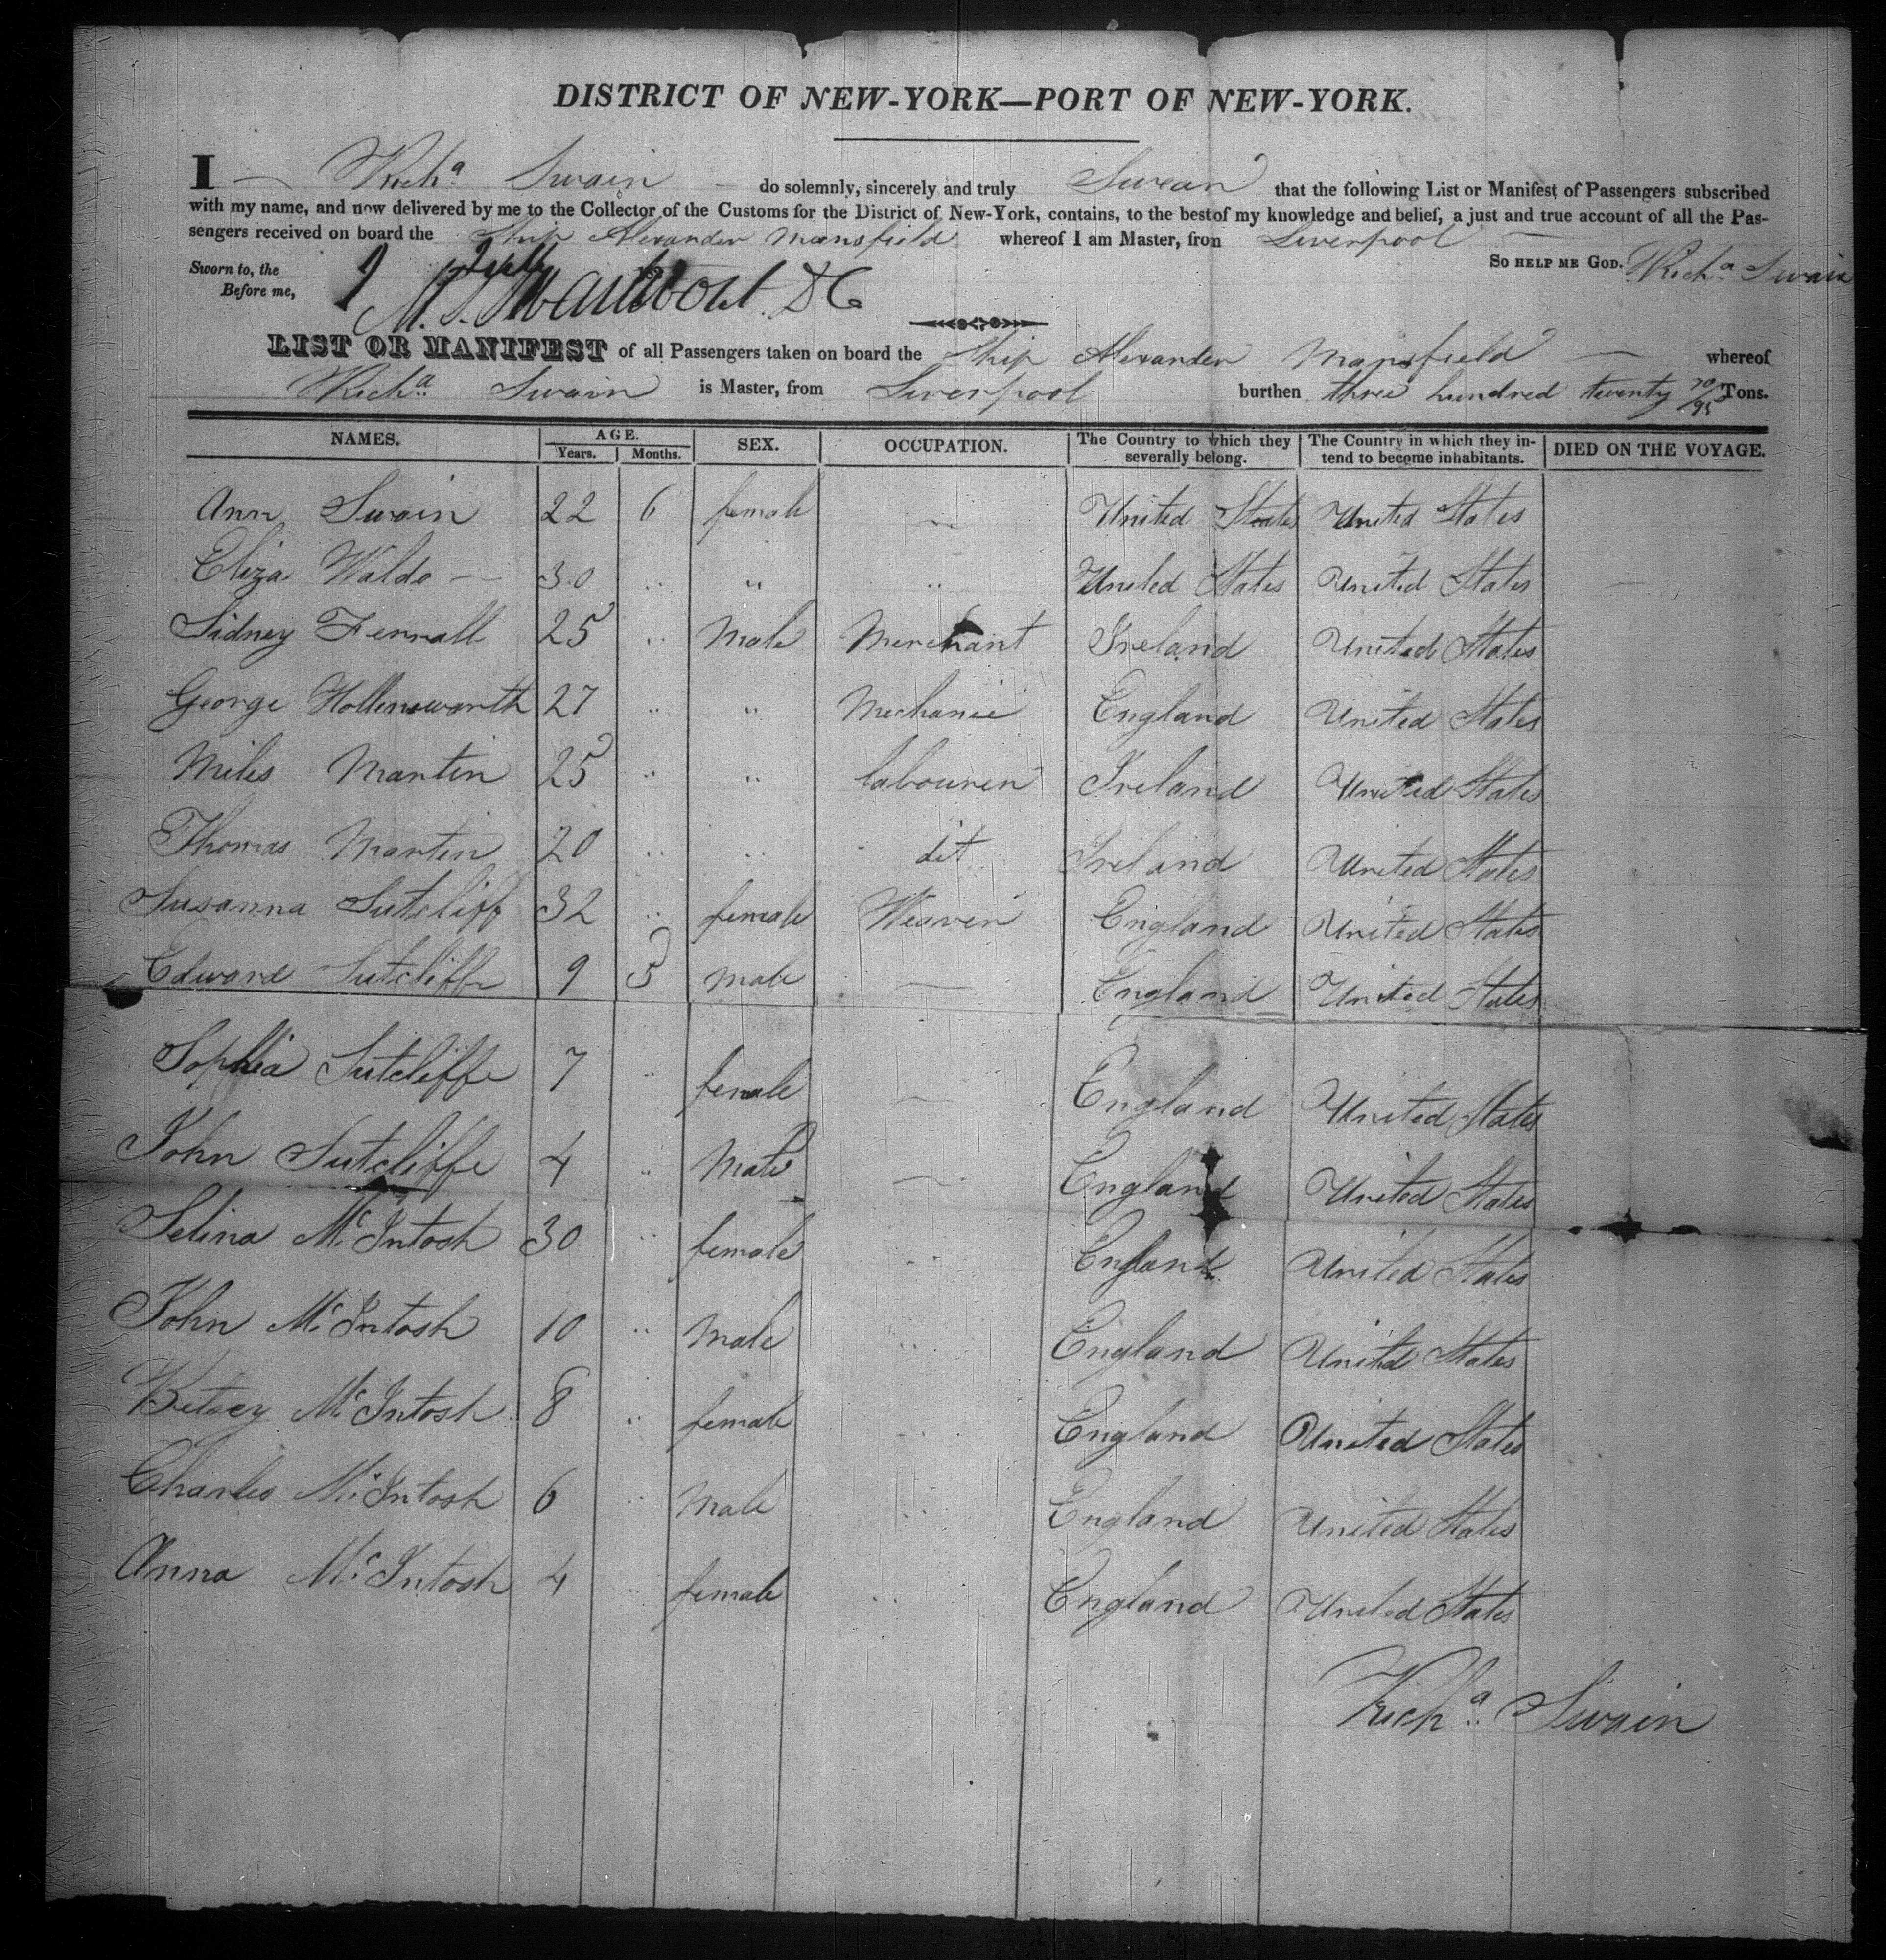 DISTRICT OF NEW-YORK—PORT OF NEW-YORK.
I Richa Swain do solemnly, sincerely and truly Swear that the following List or Manifest of Passengers subscribed
with my name, and now delivered by me to the Collector of the Customs for the District of New-York, contains, to the best of my knowledge and belief, a just and true account of all the Pas-
sengers received on board the Ship Alexander Mansfield whereof I am Master, from Liverpool
Sworn to, the So HELP ME GOD. Richa Swain
Before me,
LIST OR MANIFEST of all Passengers taken on board the Ship Alexander Mansfield whereof
Richa Swain is Master, from Liverpool burthen three hundred twenty 70/95 Tons.
NAMES. AGE. Years. Months. SEX. OCCUPATION. The Country to which they severally belong. The Country in which they in-tend to become inhabitants. DIED ON THE VOYAGE.
Ann Swain 22 6 female — United States United States
Eliza Waldo — 30 .. " .. United States United States
Sidney Ferrall 25 .. Male Merchant Ireland United States
George Hollinsworth 27 .. " Mechanic England United States
Miles Martin 25 .. " labourer Ireland United States
Thomas Martin 20 .. .. dit Ireland United States
Susanna Sutcliff 32 .. female Weaver England United States
Edward Sutcliffe 9 5 Male — England United States
Sophia Sutcliffe 7 .. female — England United States
John Sutcliffe 4 .. Male — England United States
Selina McIntosh 30 .. female .. England United States
John McIntosh 10 .. Male .. England United States
Betsey McIntosh 8 .. female .. England United States
Charles McIntosh 6 .. Male .. England United States
Anna McIntosh 4 .. female .. England United States
Richa Swain